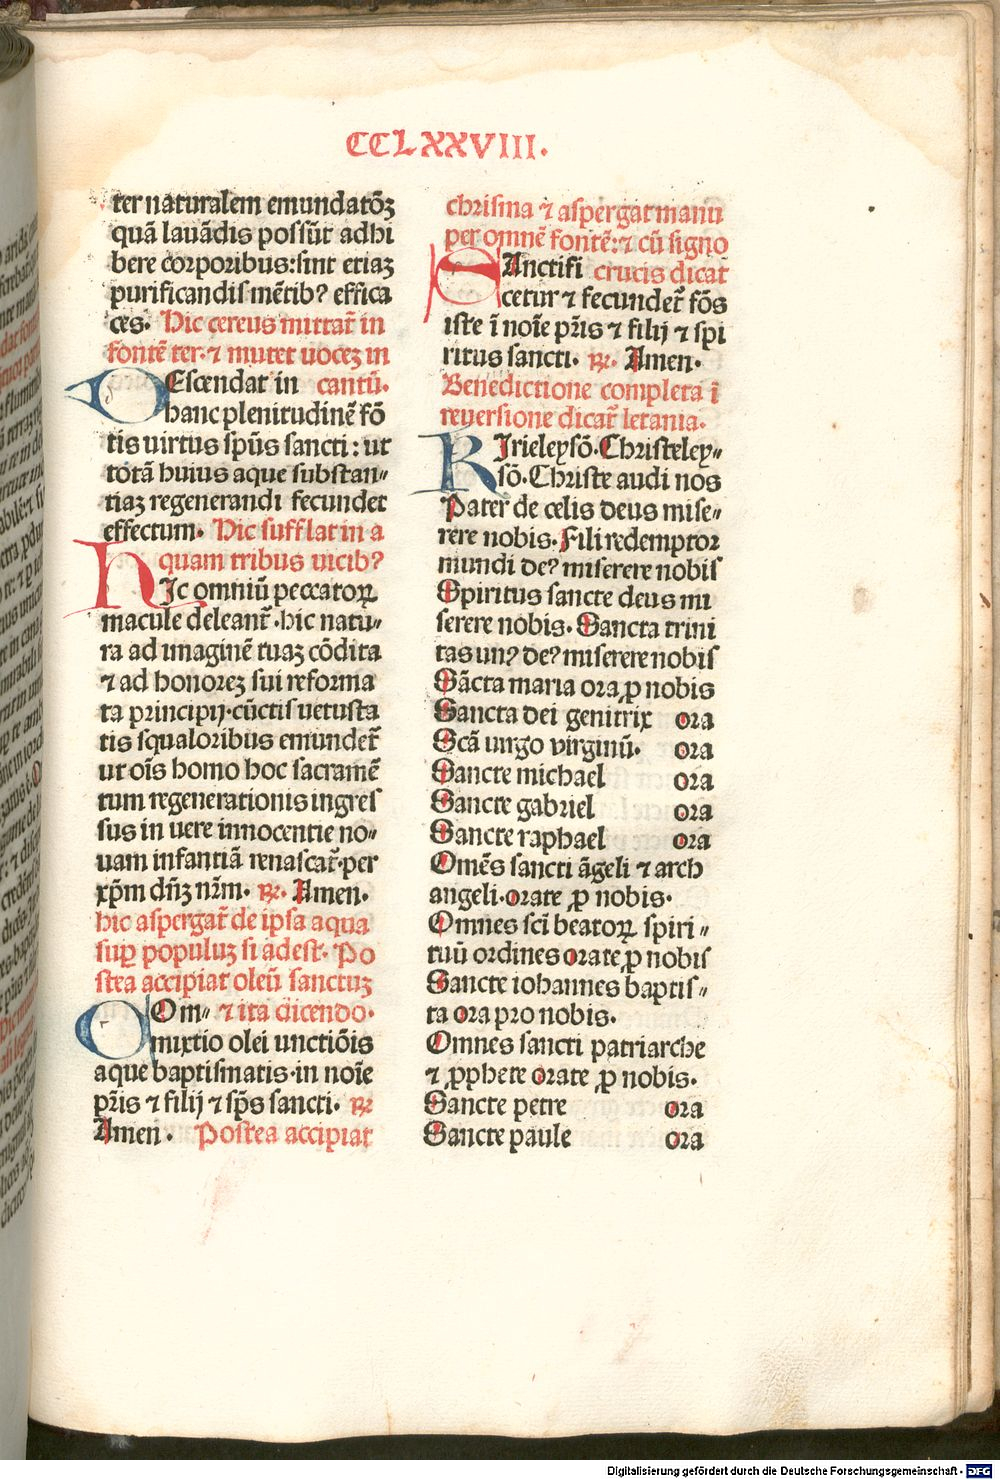 CCLXXVIII.
ter naturalem emundatōꝫ
quā lauādis possūt adhi
bere corporibus:sint etiaꝫ
purificandis mētibꝰ effica
ces. Hic cereus mittat̄ in
fontē ter.⁊ mutet uoceꝫ in
DEscendat in cantū.
hanc plenitudinē fō
tis uirtus sp̄us sancti: ut
totā huius aque substan⸗
tiaꝫ regenerandi fecundet
effectum. Hic sufflat in a
quam tribus uicibꝰ
HIc omniū peccatoꝝ
macule deleant̄.hic natu⸗
ra ad imaginē tuaꝫ cōdita
⁊ ad honoreꝫ sui reforma
ta principij.cūctis uetusta
tis squaloribus emundet̄
ut oīs homo hoc sacramē
tum regenerationis ingres
sus in uere innocentie no⸗
uam infantiā renascat̄.per
xp̄m dn̄ꝫ nr̄m. ꝶ. Amen.
hic aspergat̄ de ipsa aqua
suꝑ populuꝫ si adest. Po
stea accipiat oleū sanctuꝫ
COm⸗ ⁊ ita dicendo.
mixtio olei unctiōis
aque baptismatis.in noīe
pr̄is ⁊ filij ⁊ sp̄s sancti. ꝶ
Amen. Postea accipiat
chrisma ⁊ aspergat manu
per omnē fontē:⁊ cū signo
SAnctifi crucis dicat
cetur ⁊ fecundet̄ fōs
iste ī noīe pr̄is ⁊ filij ⁊ spi
ritus sancti. ꝶ. Amen.
Benedictione completa ī
reuersione dicat̄ letania.
KIrieleysō.Christeley⸗
sō.Christe audi nos
Pater de celis deus mise⸗
rere nobis.Fili redemptor
mundi deꝰ miserere nobis
Spiritus sancte deus mi
serere nobis.Sancta trini
tas unꝰ deꝰ miserere nobis
Sācta maria ora ꝓ nobis
Sancta dei genitrix ora
Scā uirgo virginū. ora
Sancte michael ora
Sancte gabriel ora
Sancte raphael ora
Omēs sancti āgeli ⁊ arch
angeli.orate ꝓ nobis.
Omnes sci̅ beatoꝝ spiri⸗
tuū ordines orate ꝓ nobis
Sancte iohannes baptis⸗
ta ora pro nobis.
Omnes sancti patriarche
⁊ ꝓphete orate ꝓ nobis.
Sancte petre ora
Sancte paule ora
Digitalisierung gefördert durch die Deutsche Forschungsgemeinschaft - DFG